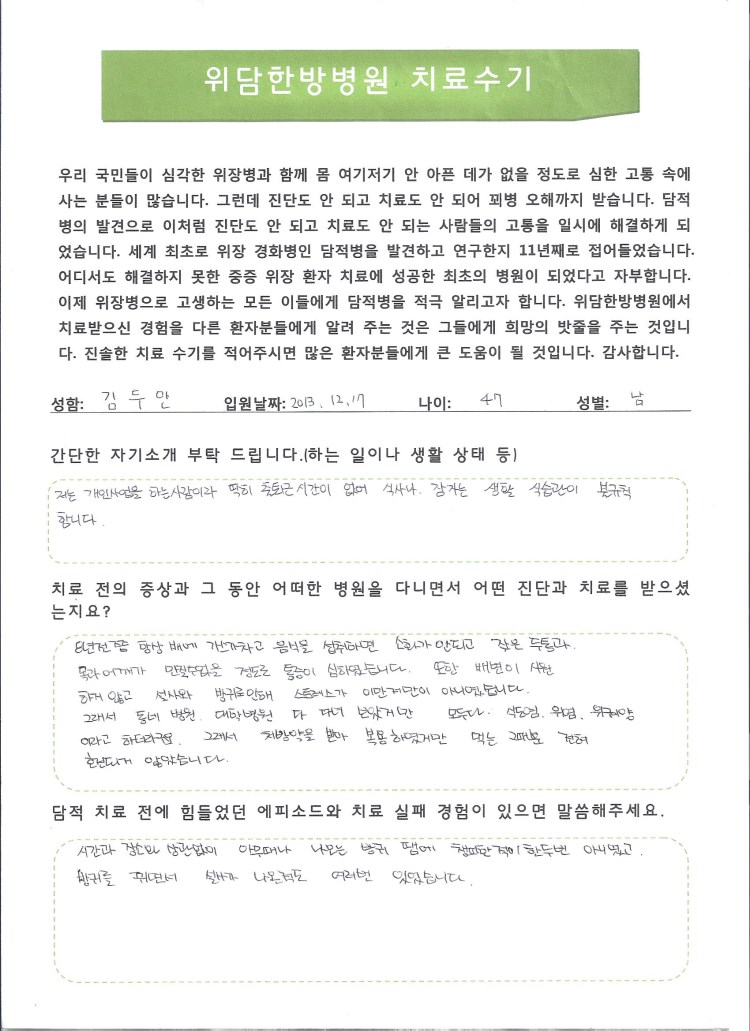 위담한방병원 치료수기
우리 국민들이 심각한 위장병과 함께 몸 여기저기 안 아픈 데가 없을 정도로 심한 고통 속에
사는 분들이 많습니다. 그런데 진단도 안 되고 치료도 안 되어 꾀병 오해까지 받습니다. 담적
병의 발견으로 이처럼 진단도 안 되고 치료도 안 되는 사람들의 고통을 일시에 해결하게 되
었습니다. 세계 최초로 위장 경화병인 담적병을 발견하고 연구한지 11년째로 접어들었습니다.
어디서도 해결하지 못한 중증 위장 환자 치료에 성공한 최초의 병원이 되었다고 자부합니다.
이제 위장병으로 고생하는 모든 이들에게 담적병을 적극 알리고자 합니다. 위담한방병원에서
치료받으신 경험을 다른 환자분들에게 알려 주는 것은 그들에게 희망의 밧줄을 주는 것입니
다. 진솔한 치료 수기를 적어주시면 많은 환자분들에게 큰 도움이 될 것입니다. 감사합니다.
성함: 김두만 입원날짜: 2013. 12. 17 나이: 47 성별: 남
간단한 자기소개 부탁 드립니다.(하는 일이나 생활 상태 등)
저는 개인사업을 하는사람이라 딱히 출퇴근 시간이 없어 식사나. 잠자는 생활 식습관이 불규칙
합니다.
치료 전의 증상과 그 동안 어떠한 병원을 다니면서 어떤 진단과 치료를 받으셨
는지요?
8년전쯤 항상 배에 가스가차고 음식을 섭취하면 소화가 안되고 잦은 두통과.
목과 어깨가 만질수없을 정도로 통증이 심하였습니다. 또한 배변이 시원
하지 않고 설사와 방귀로인해 스트레스가 이만저만이 아니였습니다.
그래서 동네 병원. 대학병원 다 다녀 보았지만 모두다. 식도염. 위염. 위궤양
이라고 하더라구요. 그래서 처방약을 받아 복용하였지만 먹는 그때뿐 전혀
호전되지 않았습니다.
담적 치료 전에 힘들었던 에피소드와 치료 실패 경험이 있으면 말씀해주세요.
시간과 장소와 상관없이 아무때나 나오는 방귀 땜에 챙피한적이 한두번 아니였고.
방귀를 뀌면서 설사가 나온적도 여러번 있었습니다.